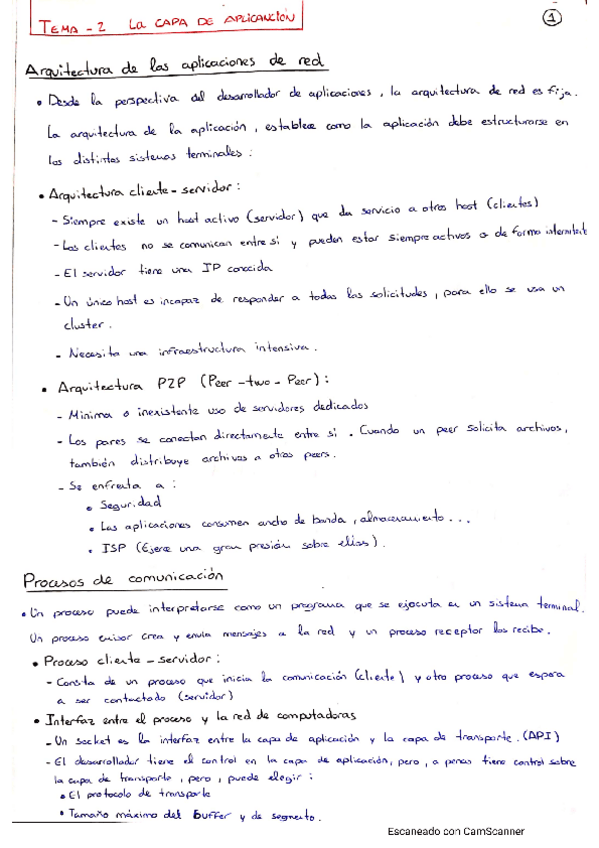 TEMA - 2 LA CAPA DE APLICANCIÓN
1
Arquitectura de las aplicaciones de red
• Desde la perspectiva del desarrollador de aplicaciones, la arquitectura de red es fija.
La arquitectura de la aplicación, establece como la aplicación debe estructurarse en
los distintos sistemas terminales:
• Arquitectura cliente-servidor:
- Siempre existe un host activo (servidor) que da servicio a otros host (clientes)
- Los clientes no se comunican entre si y pueden estar siempre activos o de forma intermitente
- El servidor tiene una IP conocida
- Un único host es incapaz de responder a todas las solicitudes, para ello se usa un
cluster.
- Necesita una infraestructura intensiva.
• Arquitectura P2P (Peer-two-Peer):
- Minima o inexistente uso de servidores dedicados
- Los pares se conectan directamente entre si. Cuando un peer solicita archivos,
también distribuye archivos a otros peers.
- Se enfrenta a:
• Seguridad
• Las aplicaciones consumen ancho de banda, almacenamiento...
• ISP (Ejerce una gran presión sobre ellos).
Procesos de comunicación
• Un proceso puede interpretarse como un programa que se ejecuta en un sistema terminal.
Un proceso emisor crea y envia mensajes a la red y un proceso receptor los recibe.
• Proceso cliente-servidor:
- Consta de un proceso que inicia la comunicación (cliente) y otro proceso que espera
a ser contactado (servidor)
• Interfaz entre el proceso y la red de computadoras
- Un socket es la interfaz entre la capa de aplicación y la capa de transporte. (API)
- El desarrollador tiene el control en la capa de aplicación, pero, a penas tiene control sobre
la capa de transporte, pero, puede elegir:
• El protocolo de transporte
• Tamaño máximo del buffer y de segmento.
Escaneado con CamScanner